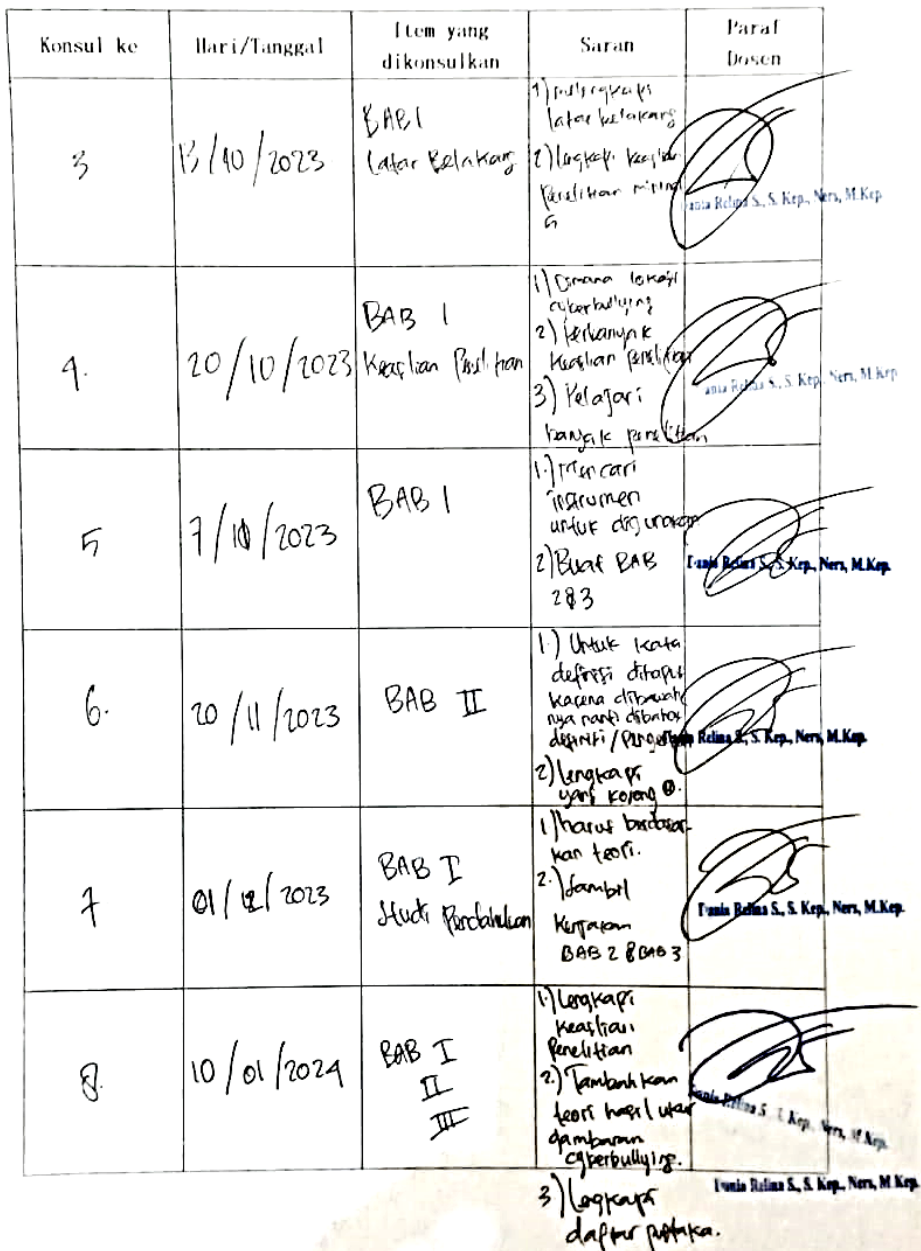 Konsul ke
Hari/Tanggal
Item yang
dikonsulkan
Saran
Paraf
Dosen
3
13/10/2023
BAB I
Latar Belakang
1)
latar belakang
2) lengkapi keaslian
Penelitian
5
S., S. Kep., Ners, M.Kep
4.
20/10/2023
BAB I
Keaslian Penelitian
1) Dimana lokasi
cyberbullying
2) Perbanyak
Keaslian Penelitian
3) Pelajari
banyak penelitian
S., S. Kep., Ners, M.Kep
5
7/11/2023
BAB I
1.) Mencari
instrumen
untuk digunakan
2) Buat BAB
2 & 3
Relina S., S. Kep., Ners, M.Kep.
6.
20/11/2023
BAB II
1.) Untuk kata
definisi dihapus
karena dibawah
nya nanti dibahas
definisi/
2) lengkapi
yang kosong
Relina S., S. Kep., Ners, M.Kep.
7
01/12/2023
BAB I
Studi Pendahuluan
1) harus berdasar
kan teori.
2.) Sambil
Kerjakan
BAB 2 & BAB 3
Relina S., S. Kep., Ners, M.Kep.
8.
10/01/2024
BAB I
II
III
1.) Lengkapi
keaslian
Penelitian
2.) Tambahkan
teori hasil
gambaran
cyberbullying.
3) Lengkapi
daftar pustaka.
Relina S., S. Kep., Ners, M.Kep.
Relina S., S. Kep., Ners, M.Kep.